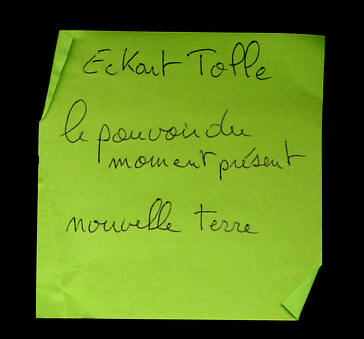 Eckart Tolle
le pouvoir du
moment présent
nouvelle terre